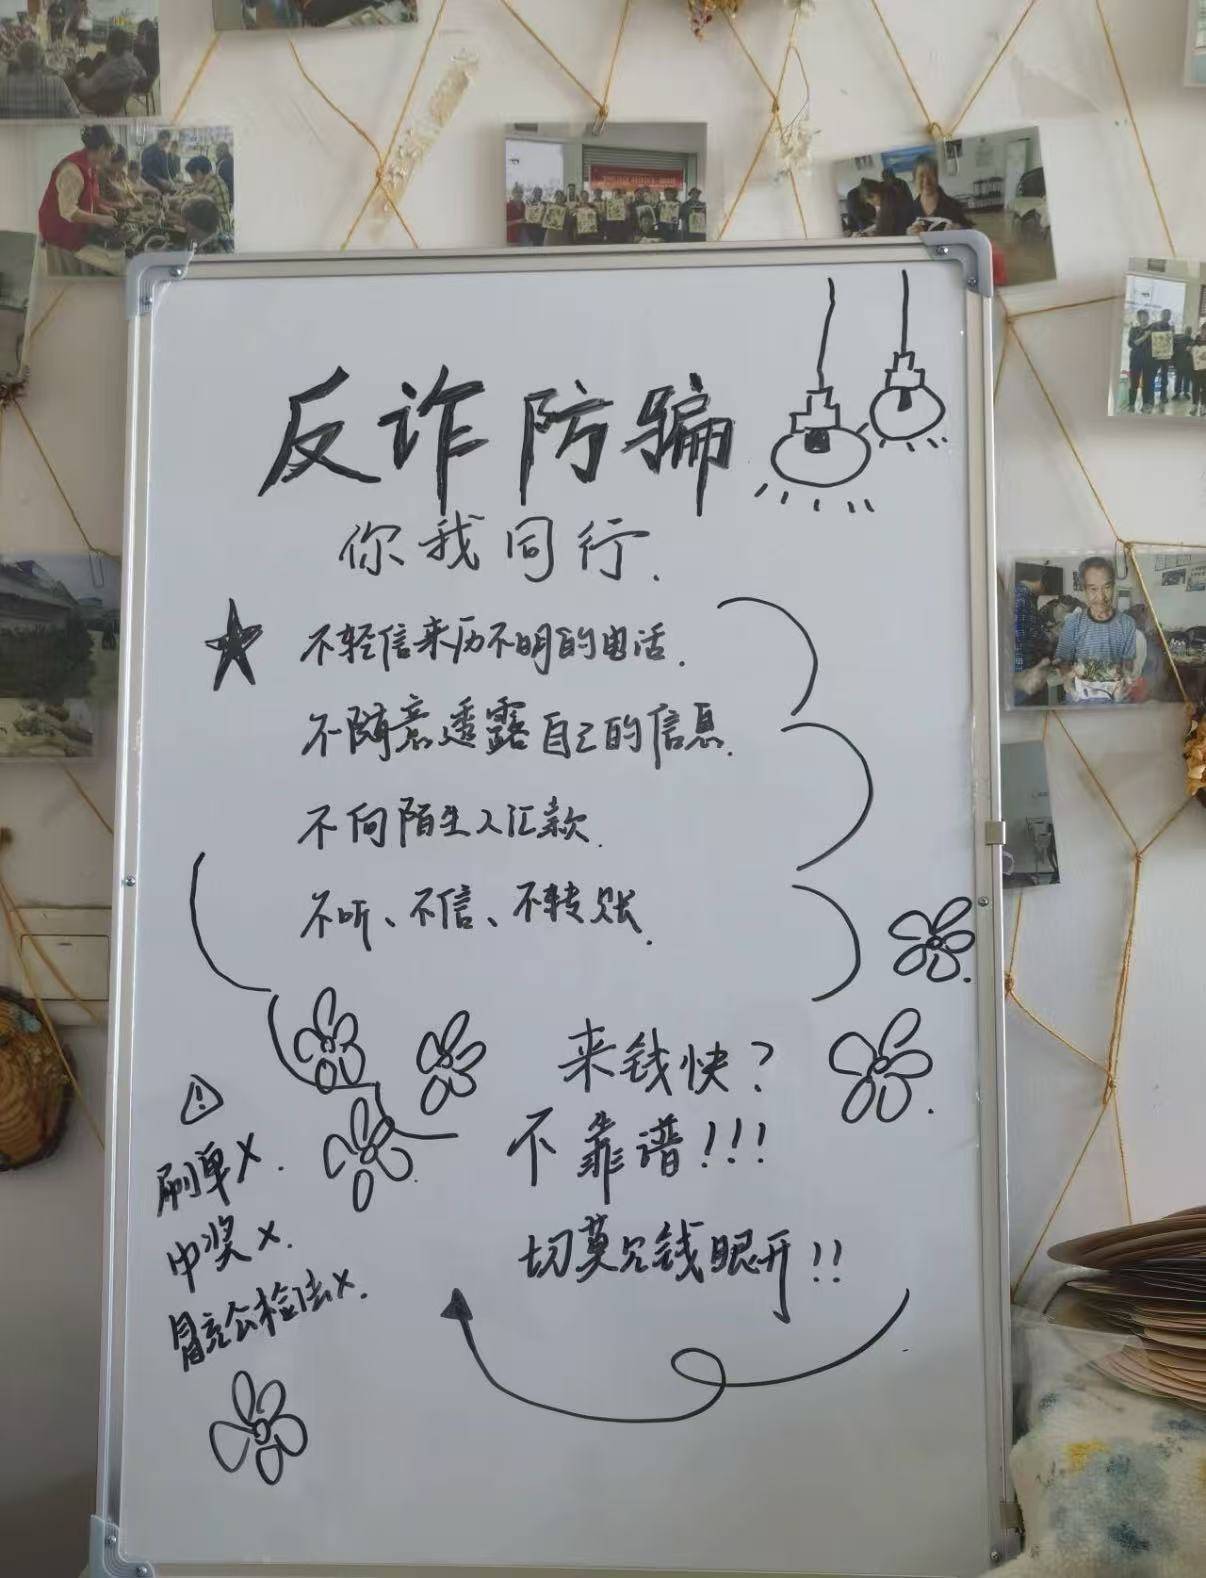 反诈防骗
你我同行.
★ 不轻信来历不明的电话.
不随意透露自己的信息.
不向陌生人汇款.
不听、不信、不转账.
来钱快?
不靠谱!!!
切莫见钱眼开!!
刷单×.
中奖×.
冒充公检法×.